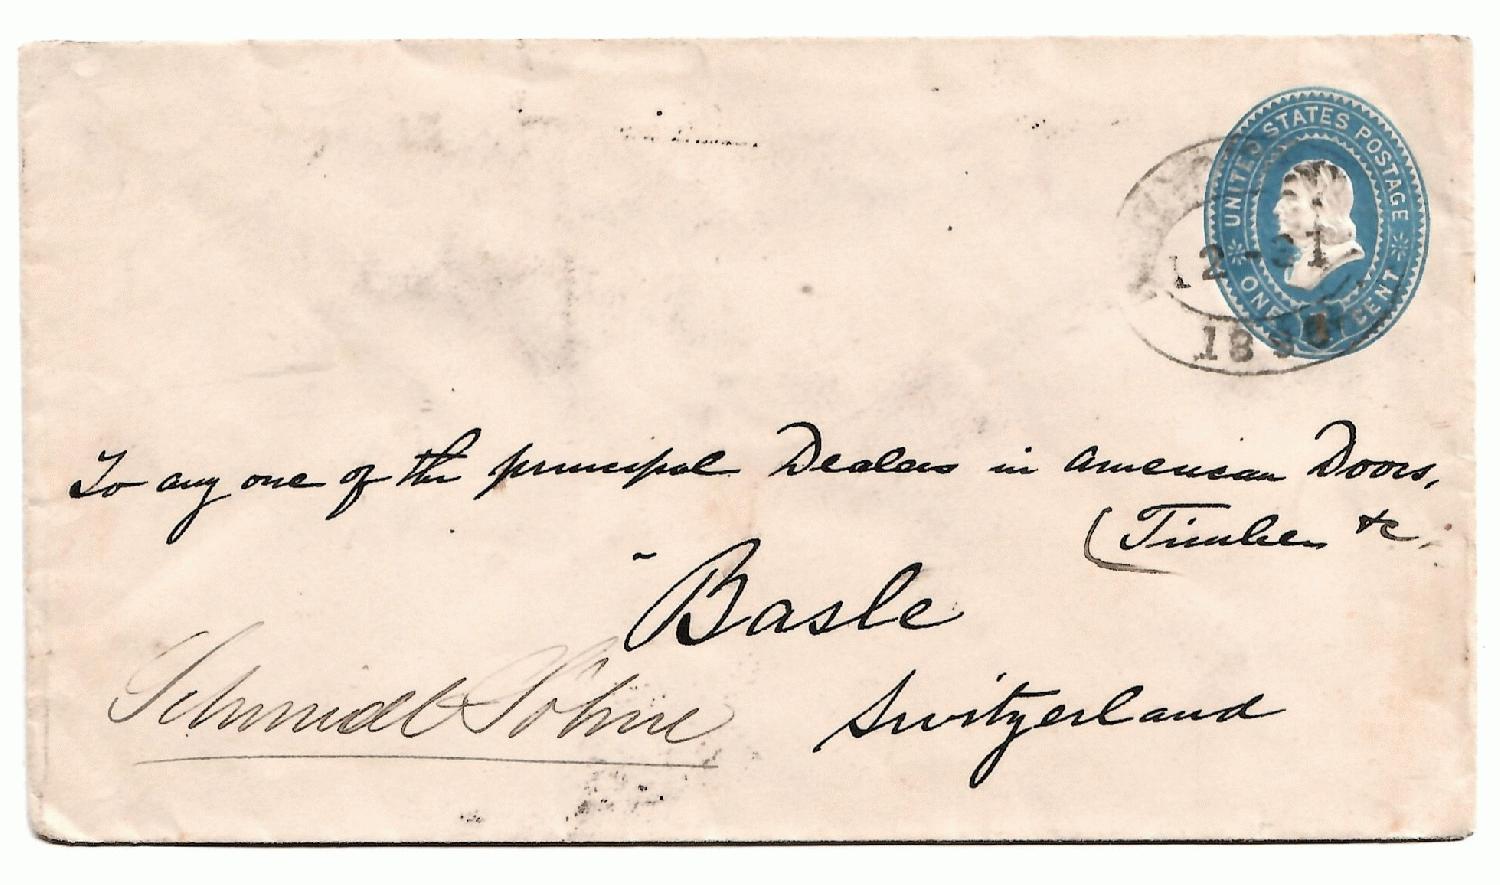 UNITED STATES POSTAGE
ONE CENT
12-31
To any one of the principal Dealers in American Doors,
Timber &c.
Basle
Switzerland
Schmidt Söhne